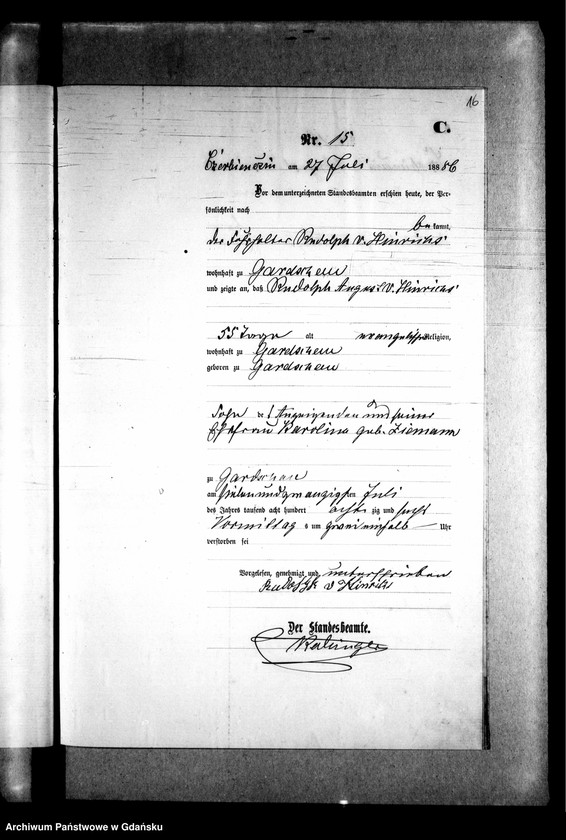 16
C.
Nr. 15
am 27 Juli 188 86
Vor dem unterzeichneten Standesbeamten erschien heute, der Per-
sönlichkeit nach
be kannt,
der Rudolph v. Hinrichs
wohnhaft zu Gardschau
und zeigte an, daß Rudolph August v. Hinrichs
55 Tage alt evangelischer Religion,
wohnhaft zu Gardschau
geboren zu Gardschau
Sohn des Anzeigenden und seiner
Ehefrau Karolina geb. Ziemann
zu Gardschau
am sieben und zwanzigsten Juli
des Jahres tausend acht hundert acht zig und sechs
Vormittags um zweieinhalb Uhr
verstorben sei
Vorgelesen, genehmigt und unterschrieben
Rudolph v Hinrichs
Der Standesbeamte.
Archiwum Państwowe w Gdańsku